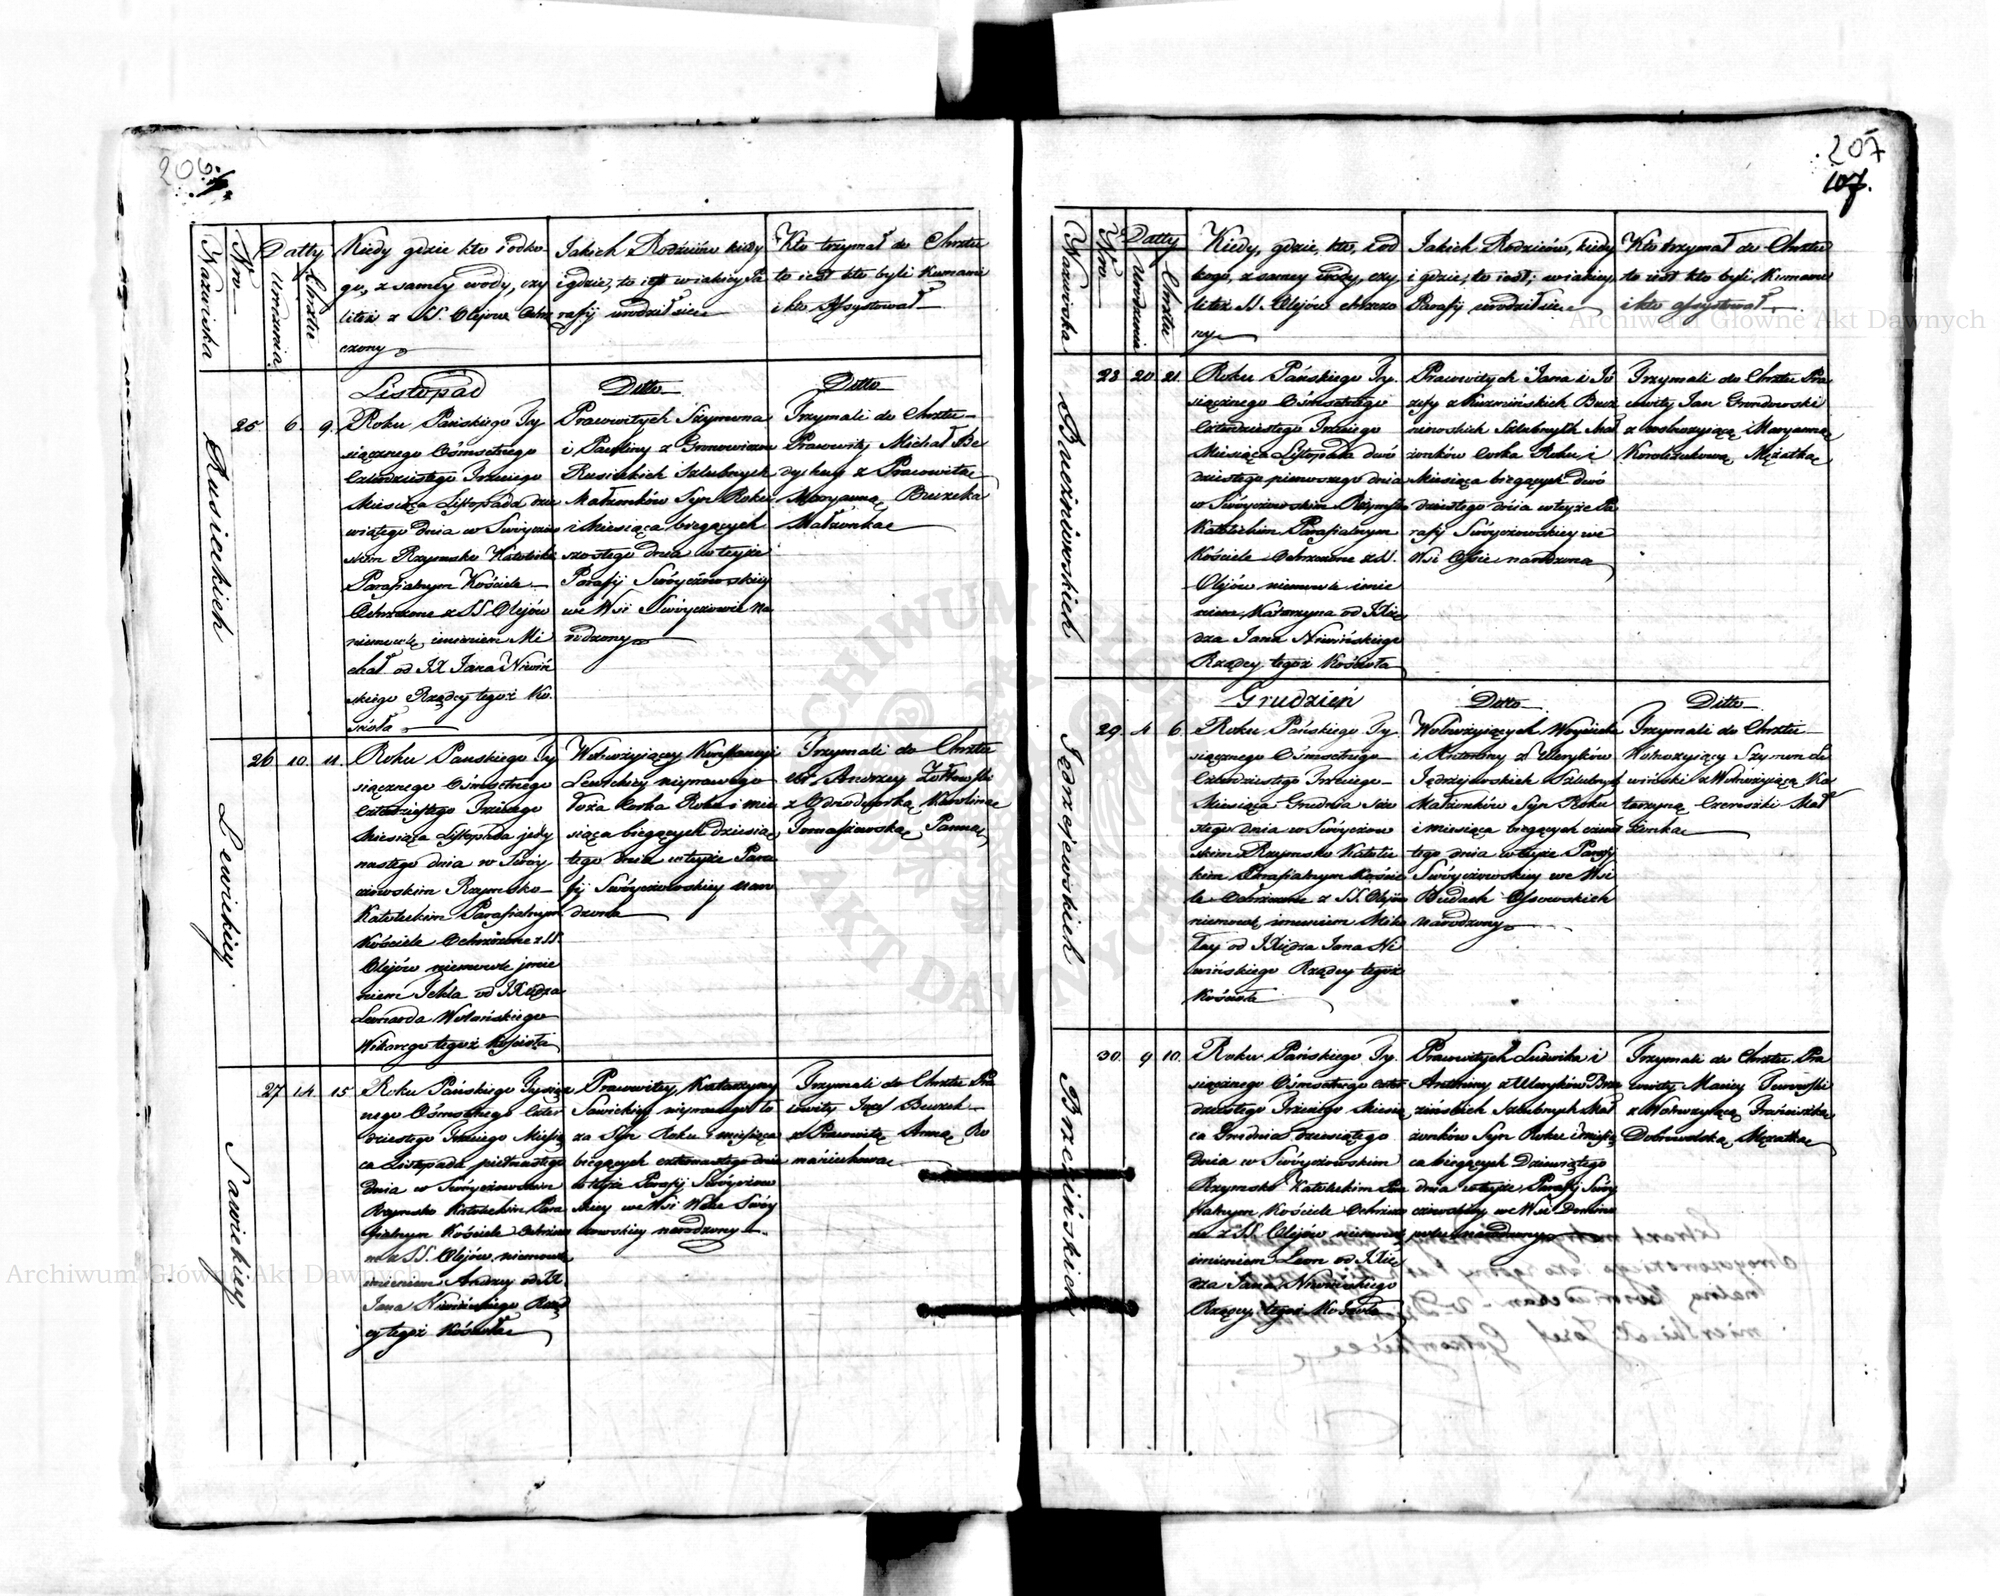 206
Nazwiska
Nro
Datty
Urodzenia
Chrztu
Kiedy gdzie kto i odko
go, z samey wody, czy
liteż z SS. Olejów Ochrz
czony
Jakich Rodziców kiedy
i gdzie, to iest w iakiey Pa
rafij urodził sie
Kto trzymał do Chrztu
to iest kto byli Kumami
i kto Assystował
Listopad
Ditto
Ditto
Rusieckich
25 6. 9.
Roku Pańskiego Ty
siącznego Ośmsetnego
Czterdziestego Trzeciego
Miesiąca Listopada dzie
wiątego dnia w Swóyczow
skim Rzymsko Katolickim
Parafialnym Kościele
Ochrzczone z SS Olejów
niemowlę imieniem Mi
chał od JX Jana Niwiń
skiego Rządcy tegoż Ko.
ścioła
Prawowitych Szymona
i Pauliny z
Rusieckich Szlubnych
Małżonków Syn Roku
i Miesiąca bieżących
szostego dnia w teyże
Parafij Swóyczowskiey
we Wsi Swóyczowie Na
rodzony
Trzymali do Chrztu
Prawowity Michał Be
dyk z Pracowitą
Maryanną
Małżonką
Lewickiey
26 10. 11.
Roku Pańskiego Ty
siącznego Ośmsetnego
Czterdziestego Trzeciego
Miesiąca Listopada jedy
nastego dnia w Swóy
czowskim Rzymsko
Katolickim Parafialnym
Kościele Ochrzczone z SS.
Olejów niemowle jmie
niem Tekla od JXiędza
Leonarda Wolańskiego
Wikarego tegoż Kościoła
Wolnożyiącey Konstancyi
Lewickiey nieprawego
łoża Corka Roku i mie
siąca bieżących dziesią
tego dnia w teyże Para
fij Swóyczowskiey naro
dzona
Trzymali do Chrztu
Andrzey Żółtowski
z Karoliną
Tomaszewską Panną
Sawickiey
27 14. 15.
Roku Pańskiego Tysiącz
nego Ośmsetnego Czter
dziestego Trzeciego Miesią
ca Listopada piętnastego
dnia w Swóyczowskim
Rzymsko Katolickim Para
fialnym Kościele Ochrzczo
ne z SS. Olejów niemowle
imieniem Andrzey od JX.
Jana Niwińskiego Rząd
cy tegoż Kościoła
Prawowitey Katarzyny
Sawickiey nieprawego ło
za Syn Roku i miesiąca
bieżących czternastego dnia
w teyże Parafij Swóyczow
skiey we Wsi Woli Swóy
czowskiey narodzony
Trzymali do Chrztu Pra
cowity Jozef
z Pracowitą Anną Ro
maniukową
207
107.
Nazwiska
Nro
Datty
Urodzenia
Chrztu
Kiedy, gdzie, kto, i od
kogo, z samey wody, czy
liteż SS. Olejów chrzczo
ny
Jakich Rodziców, kiedy
i gdzie, to iest, w iakiey
Parafij urodził sie
Kto trzymał do Chrztu
to iest kto byli Kumami
i kto assystował
28 20 21.
Roku Pańskiego Ty.
siącznego Ośmsetnego
Czterdziestego Trzeciego
Miesiąca Listopada dwó
dziestego pierwszego dnia
w Swóyczowskim Rzymsko
Katolickim Parafialnym
Kościele Ochrzczone z SS.
Olejów niemowle imie
niem Katarzyna od JXię
dza Jana Niwińskiego
Rządcy tegoż Kościoła
Prawowitych Jana i Jó
zefy z Kuzmińskich
Szlubnych Mał
żonków Corka Roku i
Miesiąca bieżących dwó
dziestego dnia w teyże Pa
rafij Swóyczowskiey we
Wsi narodzona
Trzymali do Chrztu Pra
cowity Jan
z wolnożyiącą Maryanną
Mężatką
Grudzień
Ditto
Ditto
Jędrzejewskich
29. 4 6.
Roku Pańskiego Ty
siącznego Ośmsetnego
Czterdziestego Trzeciego
Miesiąca Grudnia szo
stego dnia w Swóyczow
skim Rzymsko Katolic
kim Parafialnym Koście
le Ochrzczone z SS. Olejów
niemowlę imieniem Miko
łay od JXiędza Jana Ni
wińskiego Rządcy tegoż
Kościoła
Wolnożyiących Woyciecha
i Antoniny z Uleryków
Jędrzejewskich Szlubnych
Małżonków Syn Roku
i miesiąca bieżących czwar
tego dnia w teyże Parafij
Swóyczowskiey we Wsi
Budach Ossowskich
narodzony
Trzymali do Chrztu
Wolnożyiący Szymon Le
wiński z Wolnożyiącą Ka
tarzyną Mał
żonką
Brzezińskich
30. 9 10.
Roku Pańskiego Ty.
siącznego Ośmsetnego czter
dziestego Trzeciego Miesią
ca Grudnia dziesiątego
dnia w Swóyczowskim
Rzymsko Katolickim Para
fialnym Kościele Ochrzczo
ne z SS. Olejów niemowlę
imieniem Leon od JXię
dza Jana Niwińskiego
Rządcy tegoż Kościoła
Prawowitych Ludwika i
Antoniny z Uleryków Brze
zińskich Szlubnych Mał
żonków Syn Roku i miesią
ca bieżących Dziewiątego
dnia w teyże Parafij Swóy
czowskiey we Wsi Domino
polu narodzony
Trzymali do Chrztu Pra
cowity Maciey
z Wolnożyiącą Franciszką
Dobrowolską Mężatką
Archiwum Główne Akt Dawnych
Archiwum Główne Akt Dawnych